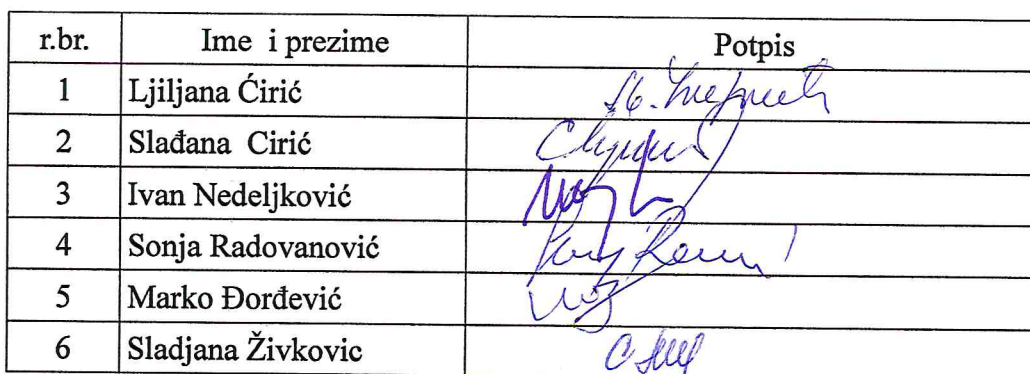 r.br. Ime i prezime Potpis
1 Ljiljana Ćirić
2 Slađana Cirić
3 Ivan Nedeljković
4 Sonja Radovanović
5 Marko Đorđević
6 Sladjana Živkovic